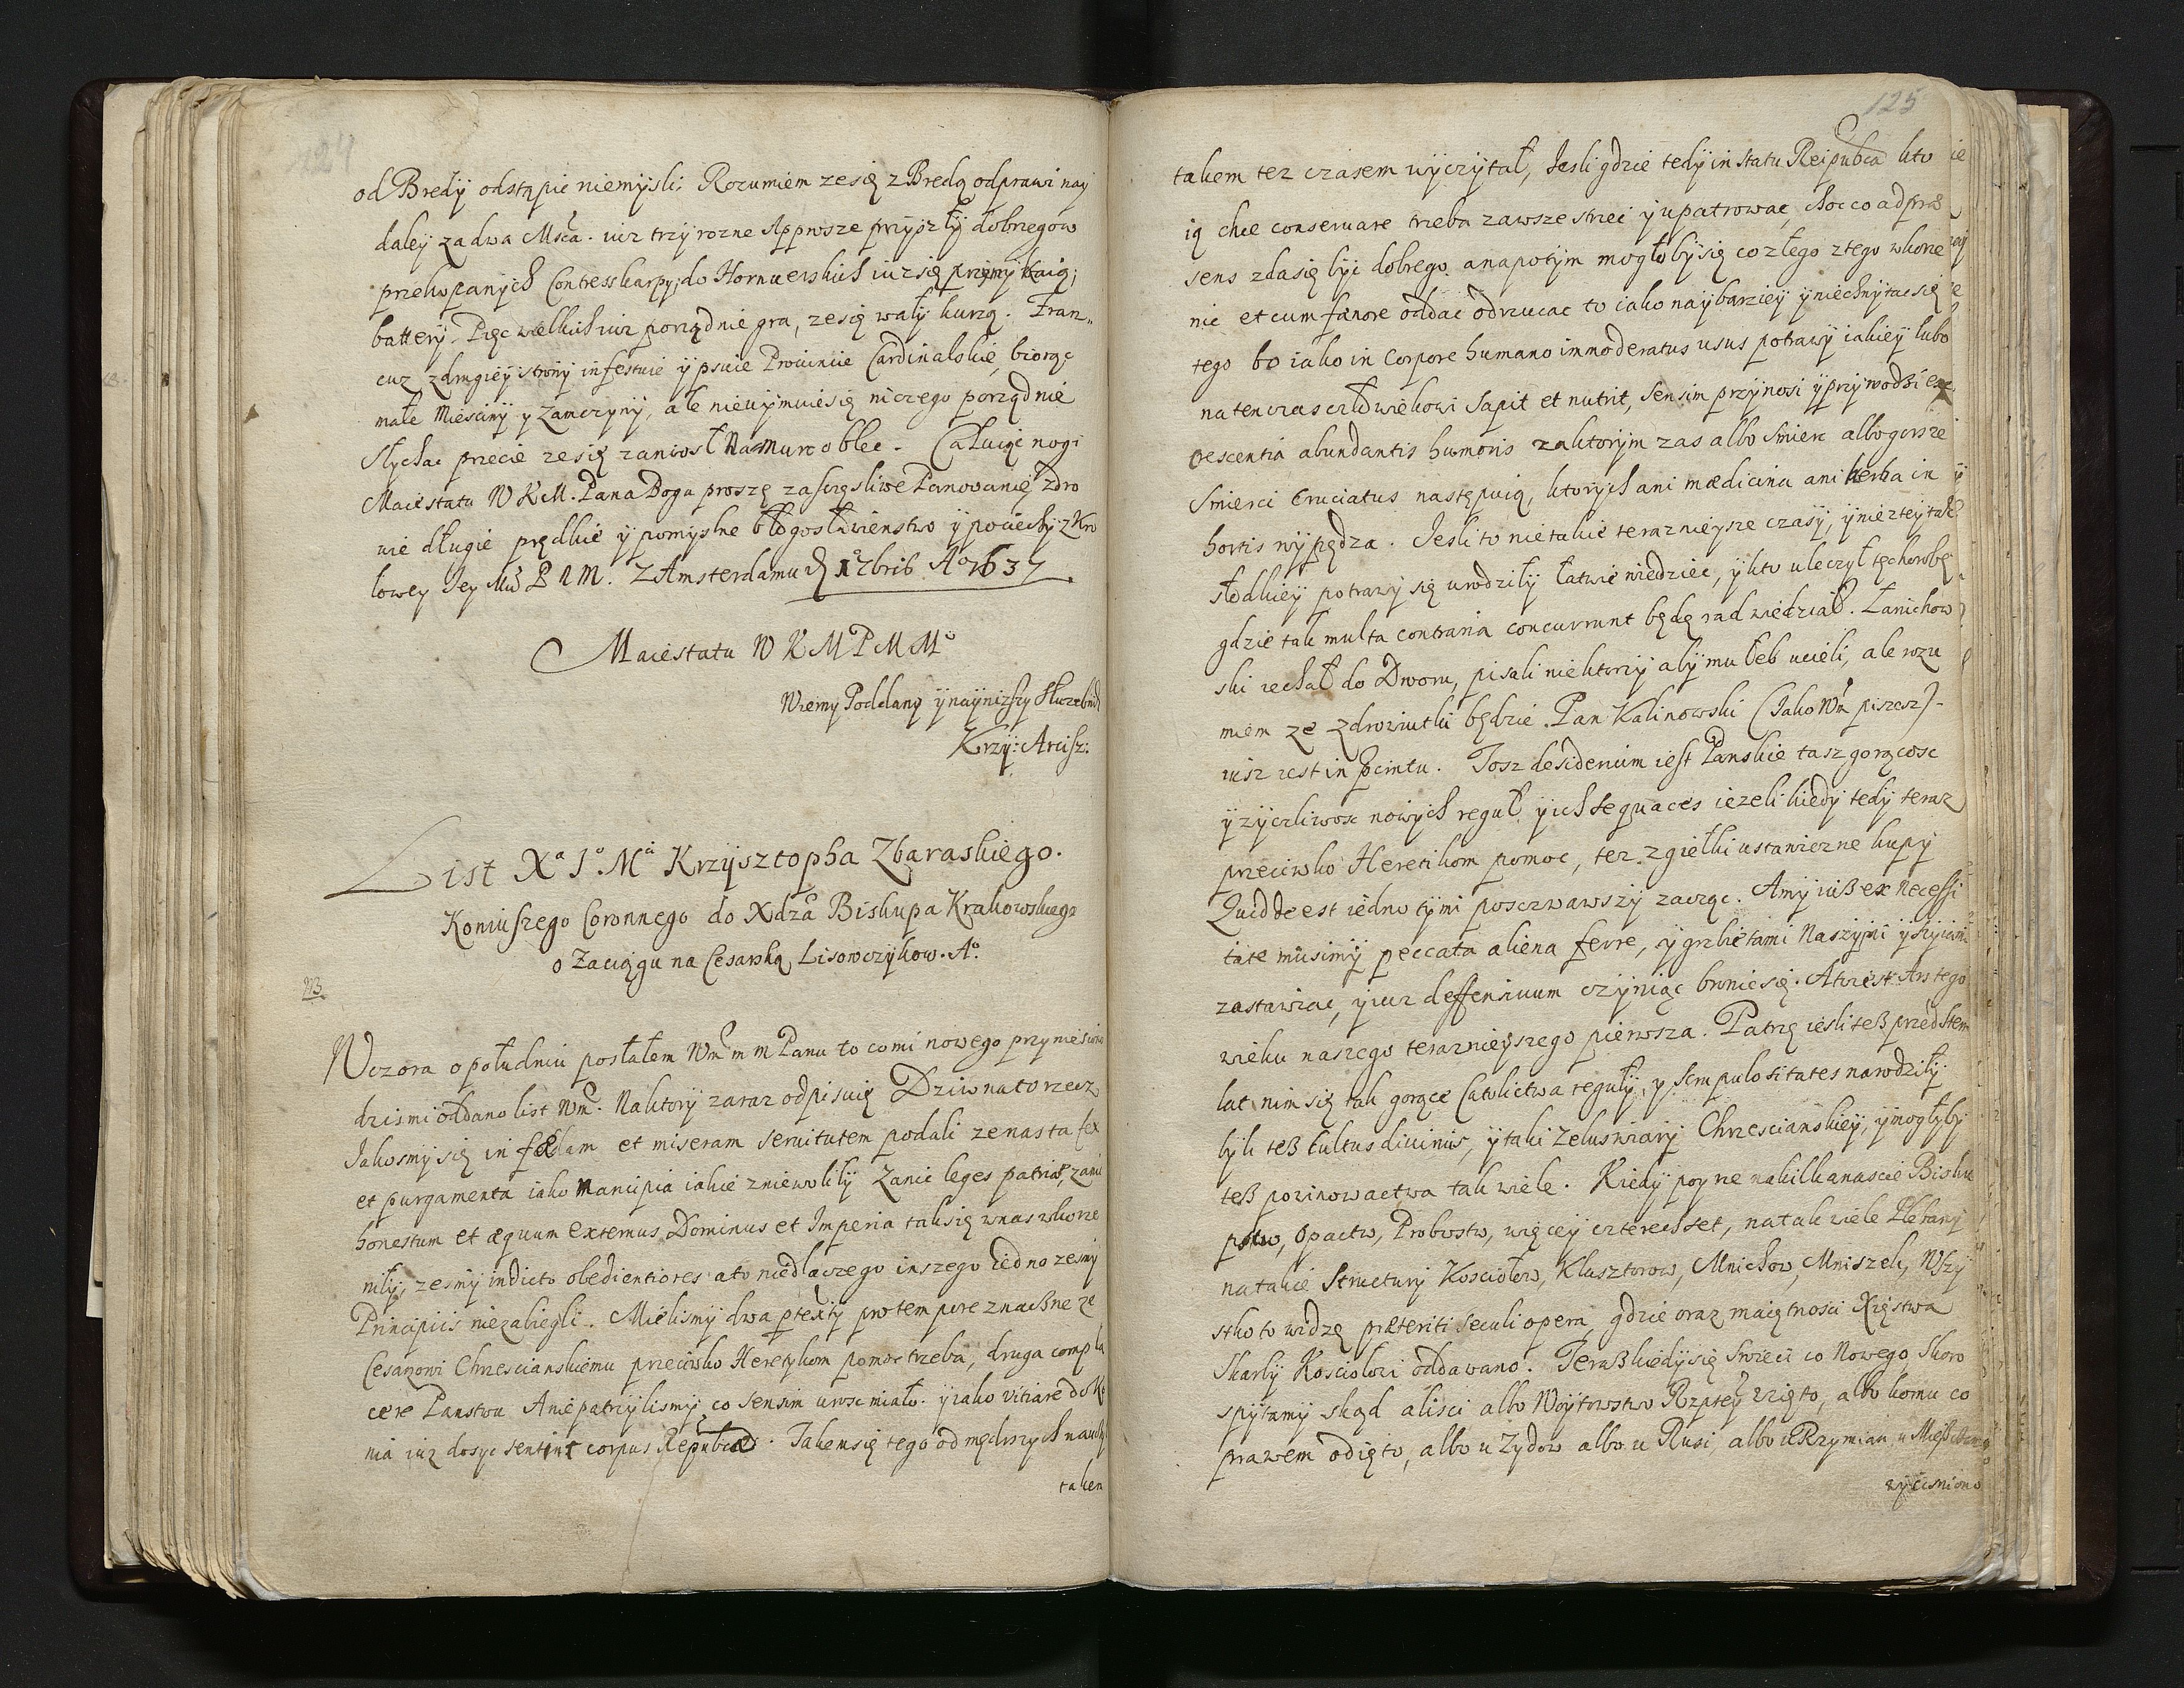 124
od Bredÿ odstąpic niemÿsli; Rozumiem ze się z Bredą odprawi naÿ
daleÿ za dwa Msca. iuz trzÿ rozne Approsze przÿszłÿ do brzegow
przekopanÿch Contresskarpÿ; do Hornwerskich iuz się przymÿkaią;
batterÿ. Pięc wielkich iuz porządnie gra, ze się wałÿ kurzą. Fran„
cuz z drugieÿ stronÿ infestuie ÿ psuie Prowincie Cardinalskie, biorąc
małe Miescinÿ y Zamczynÿ, ale nieuÿmuie się niczego porządnie
Słychac przecie ze się zaniosł Namurc oblec. Całuiąc nogi
Maiestatu W K M. Pana Boga proszę za sczęsliwe Panowanie, zdro
wie długie prędkie ÿ pomyslne błogosławienstwo ÿ pociechÿ z Kro
lowey Jey Mci P N M. Z Amsterdamu d 1 7bris Aº 1637
Maiestatu W K M P M Mº
Wierny Poddany ÿ naÿnizszy Słuzebnik
Krzÿ: Arcisz:
List Xª Jº Mci Krzÿsztopha Zbaraskiego.
Koniuszego Coronnego do Xdza Biskupa Krakowskiego
o Zaciągu na Cesarską Lisowczykow. Aº.
NB
Wczora o południu posłałem Wm m m Panu to co mi nowego przyniesiono
dzis mi oddano list Wm. Na ktorÿ zaraz odpisuię Dziwna to rzecz
Jakosmÿ się in fædam et miseram seruitutem podali ze nas ta fex
et purgamenta iako mancipia iakie zniewolilÿ Zanic leges patriæ, zanic
honestum et æquum Externus Dominus et Imperia tak się w nas wkorze
nilÿ, zesmÿ indicto obedientiores a to nie dlaczego inszego iedno zesmy
Principiis niezabiegli. Mielismÿ dwa ptextÿ pro tempore znaczne ze
Cesarzowi Chrzescianskiemu przeciwko Heretykom pomoc trzeba, druga compla
cere Panstwu A nie patrzÿlismÿ co sensim urosc miało. ÿ iako vitiare
nia iuz dosyc sentint corpus Repubcæ. Takem się tego od mędrszÿch nauczÿł
takem
125
takem tez czasem wÿczÿtał, Jesli gdzie tedÿ in statu Reipubca kto
ią chce conseruare trzeba zawsze strzec ÿ upatrowac, choc co ad præ
sens zda się bÿc dobrego. a napotÿm mogłobÿ się co złego z tego wkorze
nic et cum fænore oddac odrzucac to iako naÿbarzieÿ ÿ niechwÿtac się
tego bo iako in Corpore humano immoderatus usus potrawÿ iakieÿ lubo
na ten czas człowiekowi Sapit et nutrit, sensim przÿnosi ÿ przÿwodzi exc
rescentia abundantis humoris za ktorÿm zas albo smierc albo gorsze
smierci cruciatus następuią, ktorÿch ani mædicina ani herba in
hortis wÿpędza. Jesli to nie takie teraznieÿsze czasÿ, ÿ nie z teÿ tak
słodkieÿ potrawÿ się urodziłÿ łatwie wiedziec, ÿ kto uleczÿł tę chorobę
gdzie tak multa contraria concurrunt będę rad wiedział. Łanickow
ski iechał do Dworu, pisali niektorzÿ abÿ mu łeb ucieli, ale rozu
miem ze zdrowiutki będzie. Pan Kalinowski (Jako Wm piszesz)
iusz iest in . Tosz desiderium iest Panskie tasz gorącosc
ÿ zÿczliwosc nowÿch reguł ÿ ich sequaces iezeli kiedÿ tedÿ teraz
przeciwko Heretikom pomoc, tez zgiełki ustawiczne kupÿ
Quid deest iedno tÿmi poczwawszÿ zacząc. A mÿ iuß ex necessi
tate musimÿ peccata aliena ferre, ÿ grzbietami Naszÿmi ÿ szÿiami
zastawiac, ÿ iuz deffensiuum czÿniąc bronic się. A to iest Ars tego
wieku naszego teraznieÿszego pierwsza. Patrzę iesli teß przed stem
lat nim się tak gorące Catolictwa regułÿ, ÿ scrupulositates narodziłÿ
bÿł teß Cultus diuinus, ÿ taki Zelus wiarÿ Chrzescianskieÿ, ÿ mogłÿbÿ
teß powinowactwa tak wiele. Kiedÿ poyrzę na kilkanascie Bisku
pstw, Opactw, Probostw, więceÿ czterechset, na tak wiele Plebanÿ
na takie Structurÿ Kosciołow, Klasztorow, Mnichow, Mniszek, Wszÿ
stko to widzę præteriti seculi opera, gdzie oraz maiętnosci Xięstwa
Skarbÿ Kosciołowi oddawano. Teraß kiedÿ się swieci co Nowego, skoro
spÿtamÿ skąd alisci albo Woÿtowstwo Rzpteÿ wzięto, albo komu co
prawem odięto, albo u Zydow albo u Rusi, albo u Rzymian, u Mieszczan
wÿcisniono